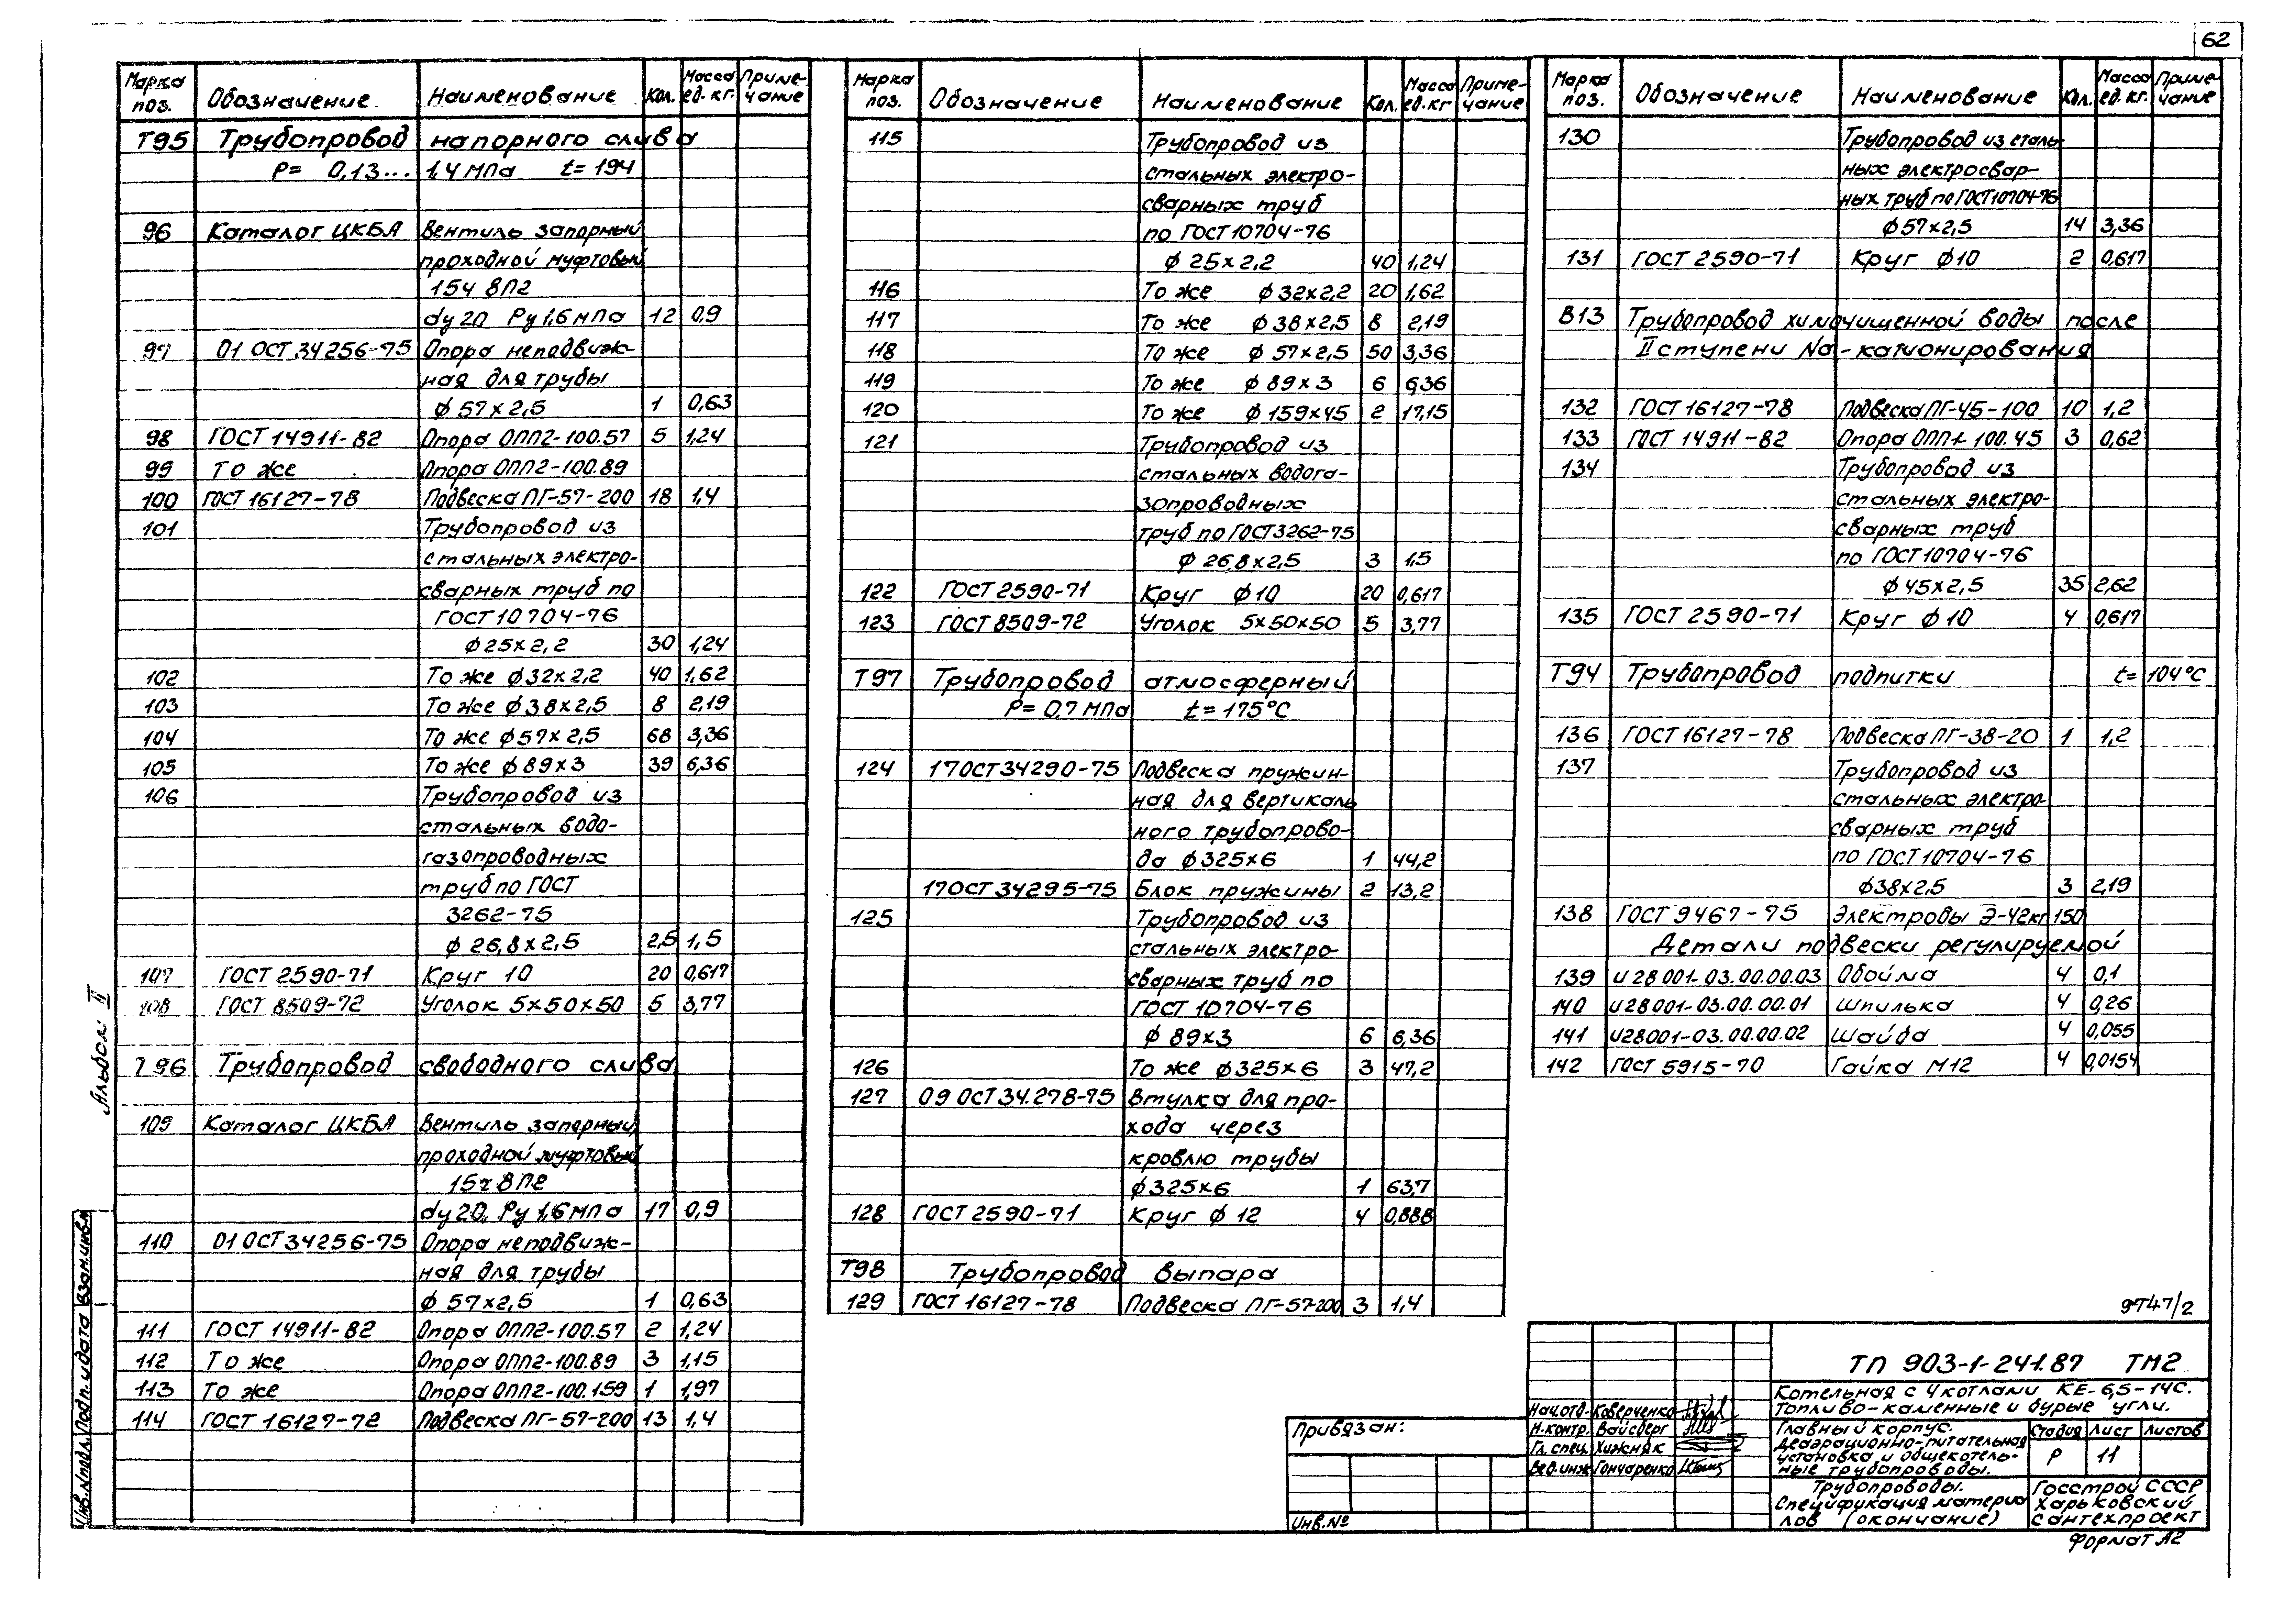 62
Марка поз. Обозначение Наименование Кол. Масса ед. кг. Приме-чание
Т95 Трубопровод напорного слива
Р= 0,13... 1,4 МПа t= 194
96 Каталог ЦКБА Вентиль запорный
проходной муфтовый
15ч 8П2
dу20 Ру1,6 мПа 12 0,9
97 01 ОСТ 34256-75 Опора неподвиж-
ная для трубы
ф 57×2,5 1 0,63
98 ГОСТ 14911-82 Опора ОПП2-100.57 5 1,24
99 То же Опора ОПП2-100.89
100 ГОСТ 16127-78 Подвеска ПГ-57-200 18 1,4
101 Трубопровод из
стальных электро-
сварных труб по
ГОСТ 10704-76
ф25×2,2 30 1,24
102 То же ф32×2,2 40 1,62
103 То же ф38×2,5 8 2,19
104 То же ф57×2,5 68 3,36
105 То же ф89×3 39 6,36
106 Трубопровод из
стальных водо-
газопроводных
труб по ГОСТ
3262-75
ф 26,8×2,5 2,5 1,5
107 ГОСТ 2590-71 Круг 10 20 0,617
108 ГОСТ 8509-72 Уголок 5×50×50 5 3,77
Т96 Трубопровод свободного слива
109 Каталог ЦКБА Вентиль запорный
проходной муфтовый
15ч 8П2
dу20, Ру1,6 мПа 17 0,9
110 01 ОСТ 34256-75 Опора неподвиж-
ная для трубы
ф 57×2,5 1 0,63
111 ГОСТ 14911-82 Опора ОПП2-100.57 2 1,24
112 То же Опора ОПП2-100.89 3 1,15
113 То же Опора ОПП2-100.159 1 1,97
114 ГОСТ 16127-72 Подвеска ПГ-57-200 13 1,4
Марка поз. Обозначение Наименование Кол. Масса ед. кг Приме-чание
115 Трубопровод из
стальных электро-
сварных труб
по ГОСТ 10704-76
ф 25×2,2 40 1,24
116 То же ф32×2,2 20 1,62
117 То же ф38×2,5 8 2,19
118 То же ф57×2,5 50 3,36
119 То же ф89×3 6 6,36
120 То же ф159×45 2 17,15
121 Трубопровод из
стальных водога-
зопроводных
труб по ГОСТ 3262-75
ф 26,8×2,5 3 1,5
122 ГОСТ 2590-71 Круг ф10 20 0,617
123 ГОСТ 8509-72 Уголок 5×50×50 5 3,77
Т97 Трубопровод атмосферный
Р= 0,7 МПа t= 175°С
124 17ОСТ 34290-75 Подвеска пружин-
ная для вертикаль
ного трубопрово-
да ф325×6 1 44,2
17ОСТ 34295-75 Блок пружины 2 13,2
125 Трубопровод из
стальных электро-
сварных труб по
ГОСТ 10704-76
ф 89×3 6 6,36
126 То же ф325×6 3 47,2
127 09 ОСТ 34.278-75 Втулка для про-
хода через
кровлю трубы
ф325×6 1 63,7
128 ГОСТ 2590-71 Круг ф 12 4 0,888
Т98 Трубопровод выпара
129 ГОСТ 16127-78 Подвеска ПГ-57-200 3 1,4
Марка поз. Обозначение Наименование Кол. Масса ед. кг. Приме-чание
130 Трубопровод из сталь-
ных электросвар-
ных труб по ГОСТ 10704-76
ф57×2,5 14 3,36
131 ГОСТ 2590-71 Круг ф10 2 0,617
В13 Трубопровод химочищенной воды после
II ступени Na-катионирования
132 ГОСТ 16127-78 Подвеска ПГ-45-100 10 1,2
133 ГОСТ 14911-82 Опора ОПП1-100.45 3 0,62
134 Трубопровод из
стальных электро-
сварных труб
по ГОСТ 10704-76
ф45×2,5 35 2,62
135 ГОСТ 2590-71 Круг ф10 4 0,617
Т94 Трубопровод подпитки t= 104°С
136 ГОСТ 16127-78 Подвеска ПГ-38-20 1 1,2
137 Трубопровод из
стальных электро-
сварных труб
по ГОСТ 10704-76
ф38×2,5 3 2,19
138 ГОСТ 9467-75 Электроды Э-42кг 150
Детали подвески регулируемой
139 И 28 001-03.00.00.03 Обойма 4 0,1
140 И28001-03.00.00.01 Шпилька 4 0,26
141 И28001-03.00.00.02 Шайба 4 0,055
142 ГОСТ 5915-70 Гайка М12 4 0,0154
Альбом II
Инв.№подл. Подп. и дата Взам.инв.№
9747/2
ТП 903-1-241.87 ТМ2
Котельная с 4 котлами КЕ-6,5-14С.
Топливо-каменные и бурые угли.
Нач.отд. Коверченко
Н.контр. Вайсберг
Гл.спец. Хижняк
Вед.инж Гончаренко
Главный корпус.
Деаэрационно-питательная
установка и общекотель-
ные трубопроводы.
Стадия Лист Листов
Р 11
Трубопроводы.
Спецификация материа
лов (окончание)
Госстрой СССР
Харьковский
Сантехпроект
Привязан:
Инв.№
Формат А2